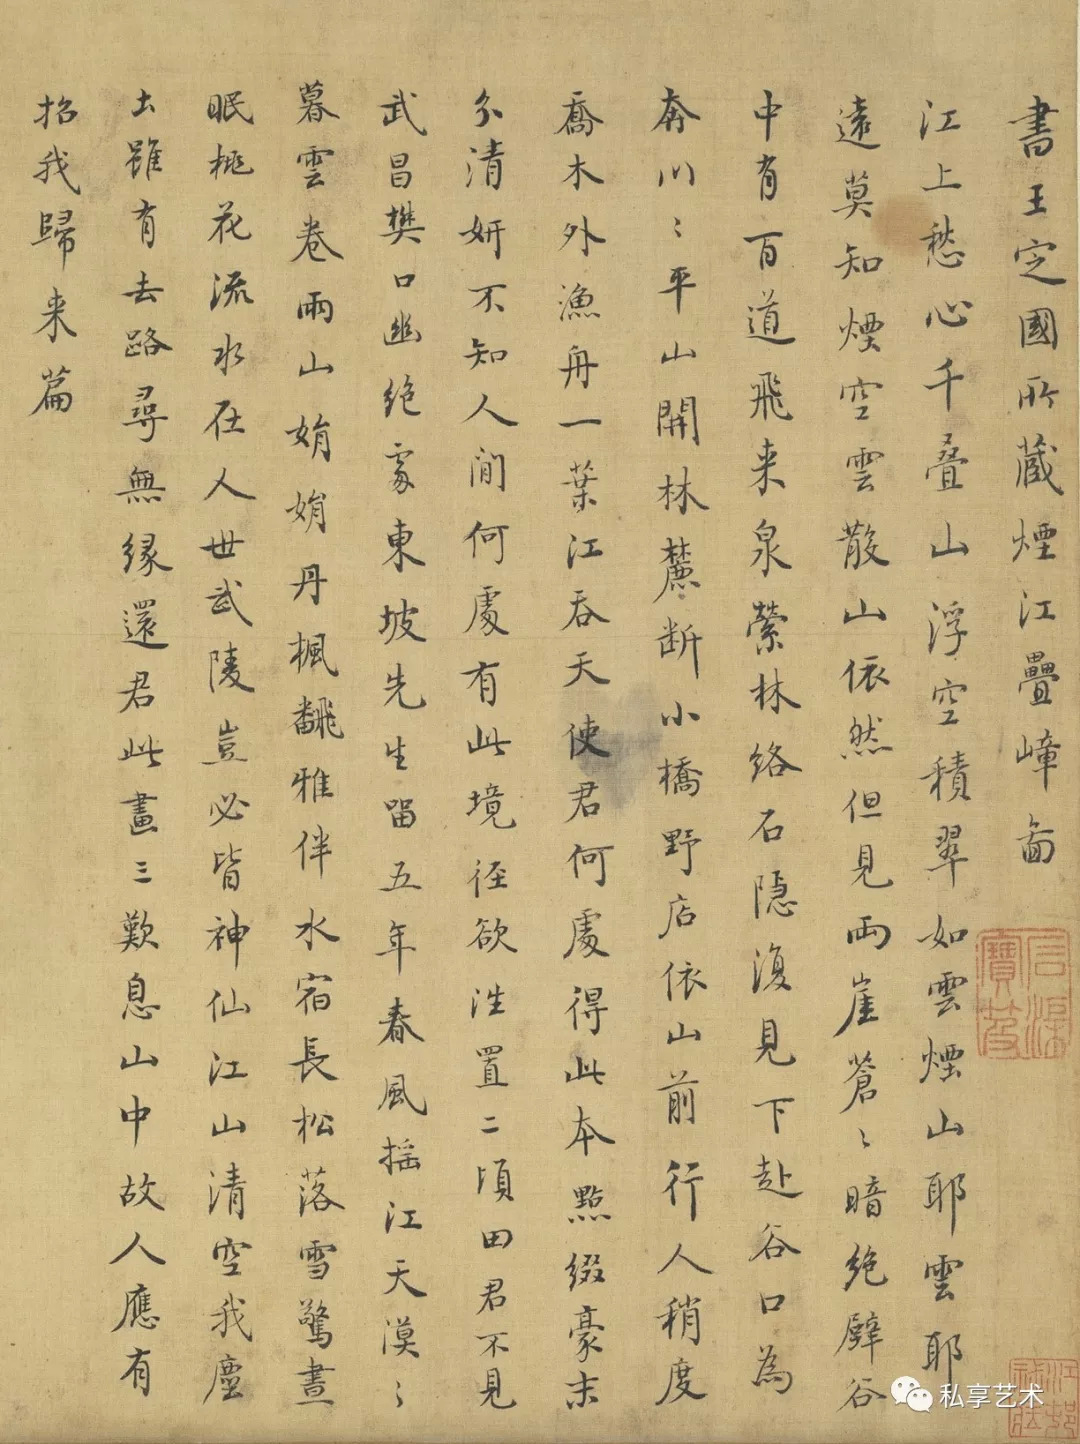 書王定國所藏煙江疊嶂畵
江上愁心千叠山浮空積翠如雲煙山耶雲耶
遠莫知煙空雲散山依然但見兩崖蒼〻暗絶壁谷
中有百道飛来泉縈林絡石隱復見下赴谷口為
奔川〻平山開林麓断小橋野店依山前行人稍度
喬木外漁舟一葉江吞天使君何處得此本點綴豪末
分清妍不知人間何處有此境徑欲往置二頃田君不見
武昌樊口幽絶處東坡先生留五年春風摇江天漠〻
暮雲卷雨山娟娟丹楓翻雅伴水宿長松落雪驚晝
眠桃花流水在人世武陵豈必皆神仙江山清空我塵
土雖有去路尋無緣還君此畫三歎息山中故人應有
招我歸来篇
私享艺术